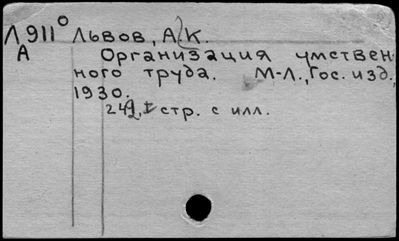 Л911° Львов, А. К.
А Организация умствен-
ного труда. М-Л., Гос. изд.,
1930.
стр. с илл.